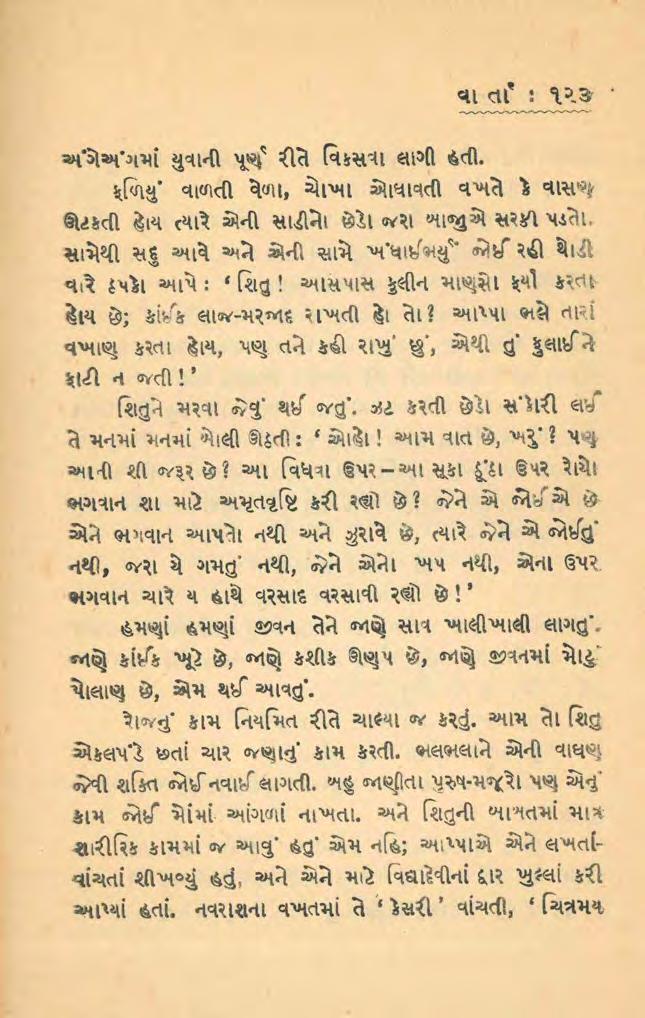 વાર્તા : ૧૨૩
અંગેઅંગમાં યુવાની પૂર્ણ રીતે વિકસવા લાગી હતી.
ફળિયું વાળતી વેળા, ચોખા ઓઘાવતી વખતે કે વાસણ
ઊટકતી હોય ત્યારે એની સાડીનો છેડો જરા બાજુએ સરકી પડતો.
સામેથી સદુ આવે અને એની સામે ખંધાઈભર્યું જોઈ રહી થોડી
વારે ઠપકો આપે : ‘ શિતુ ! આસપાસ કુલીન માણસો ફર્યા કરતા
હોય છે; કાંઈક લાજ-મરજાદ રાખતી હો તો ? આપ્પા ભલે તારાં
વખાણ કરતા હોય, પણ તને કહી રાખું છું, એથી તું ફુલાઈને
ફાટી ન જતી ! ’
શિતુને મરવા જેવું થઈ જતું. ઝટ કરતી છેડો સંકોરી લઈ
તે મનમાં મનમાં બોલી ઊઠતી : ‘ ઓહો ! આમ વાત છે, ખરું ? પણ
આની શી જરૂર છે ? આ વિધવા ઉપર – આ સૂકા ઠૂંઠા ઉપર રોયો
ભગવાન શા માટે અમૃતવૃષ્ટિ કરી રહ્યો છે ? જેને એ જોઈએ છે
એને ભગવાન આપતો નથી અને ઝુરાવે છે, ત્યારે જેને એ જોઈતું
નથી, જરા યે ગમતું નથી, જેને એનો ખપ નથી, એના ઉપર
ભગવાન ચારે ય હાથે વરસાદ વરસાવી રહ્યો છે ! ’
હમણાં હમણાં જીવન તેને જાણે સાવ ખાલીખાલી લાગતું.
જાણે કાંઈક ખૂટે છે, જાણે કશીક ઊણપ છે, જાણે જીવનમાં મોટું
પોલાણ છે, એમ થઈ આવતું.
રોજનું કામ નિયમિત રીતે ચાલ્યા જ કરતું. આમ તો શિતુ
એકલપંડે છતાં ચાર જણાનું કામ કરતી. ભલભલાને એની વાઘણ
જેવી શક્તિ જોઈ નવાઈ લાગતી. બહુ જાણીતા પુરુષ-મજૂરો પણ એનું
કામ જોઈ મોંમાં આંગળાં નાખતા. અને શિતુની બાબતમાં માત્ર
શારીરિક કામમાં જ આવું હતું એમ નહિ; આપ્પાએ એને લખતાં-
વાંચતાં શીખવ્યું હતું, અને એને માટે વિદ્યાદેવીનાં દ્વાર ખુલ્લાં કરી
આપ્યાં હતાં. નવરાશના વખતમાં તે ‘ કેસરી ’ વાંચતી, ‘ ચિત્રમય